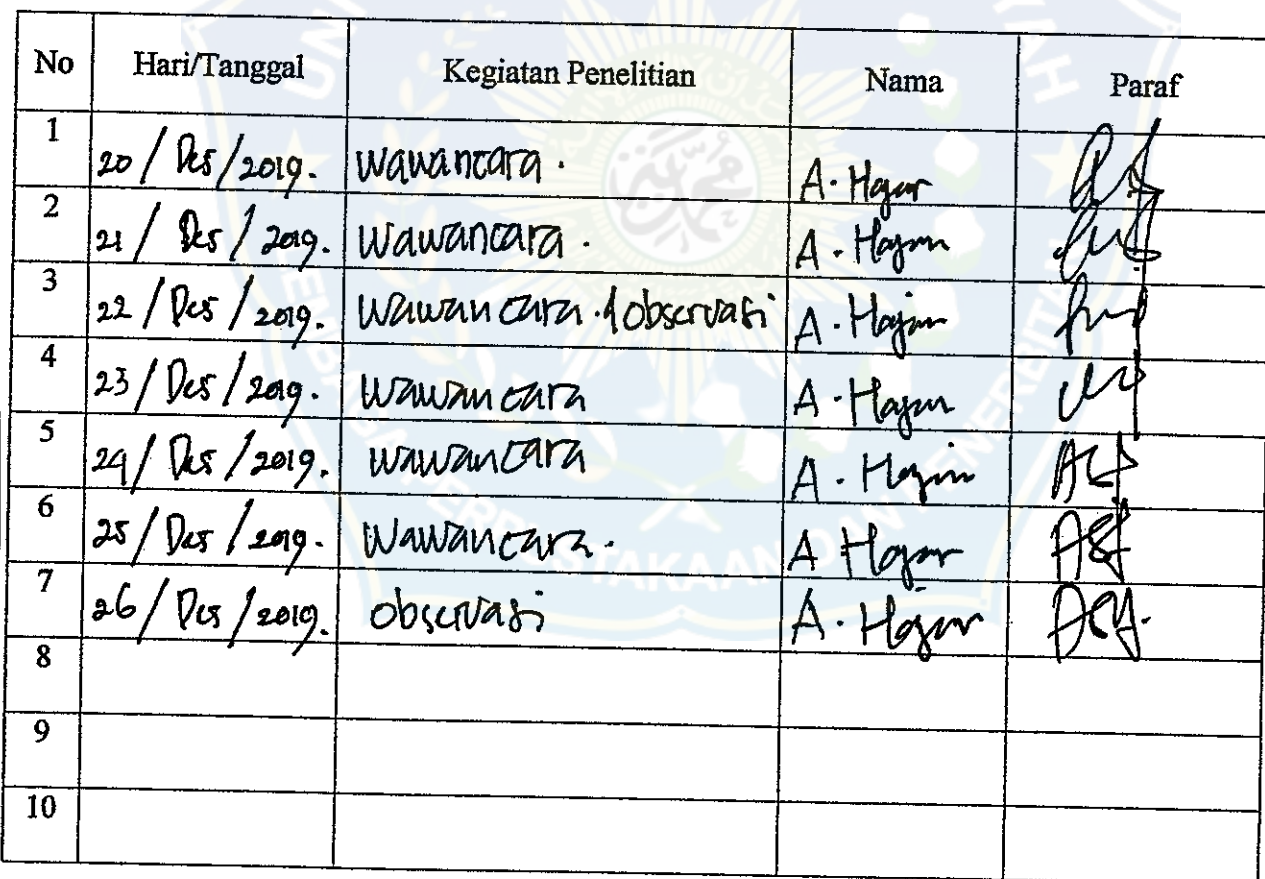 No Hari/Tanggal Kegiatan Penelitian Nama Paraf
1 20/Des/2019. Wawancara. A. Hajar
2 21/Des/2019. Wawancara. A. Hajar
3 22/Des/2019. Wawancara & observasi A. Hajar
4 23/Des/2019. Wawancara A. Hajar
5 24/Des/2019. Wawancara A. Hajar
6 25/Des/2019. Wawancara. A Hajar
7 26/Des/2019. observasi A. Hajar
8
9
10